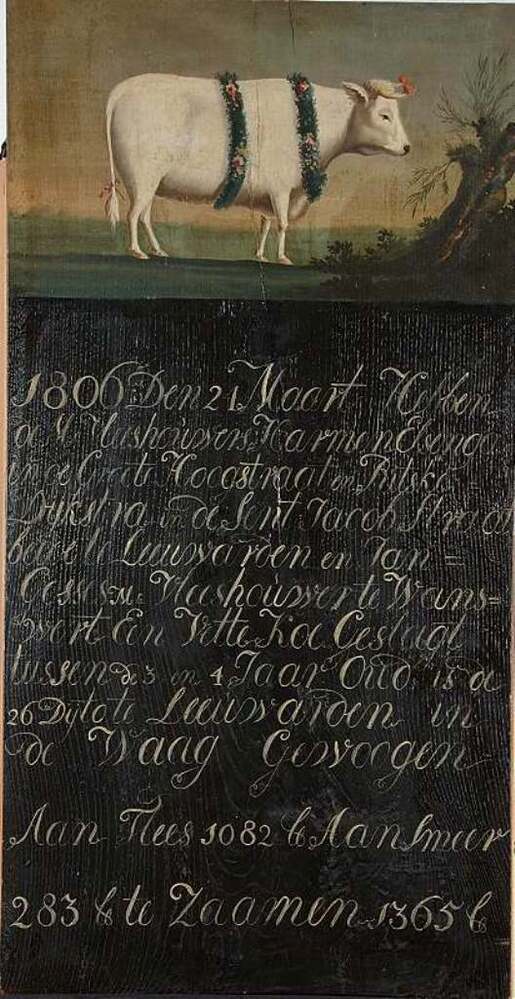 1806 Den 21 Maart Hebben
de Vleeshouwers Harmen Ebenga
in de Groote Hoogstraat en Ritske
Dijkstra in de Sent Jacob Straat
beide te Leeuwarden en Jan =
Gesses Vleeshouwer te Wans=
wert Een Vette Koe Geslagt
tussen de 3 en 4 Jaar Oud is de
26 Dijto te Leeuwarden in
de Waag Gewoogen
Aan Flees 1082 ℔ Aan Smeer
283 ℔ te Zaamen 1365 ℔